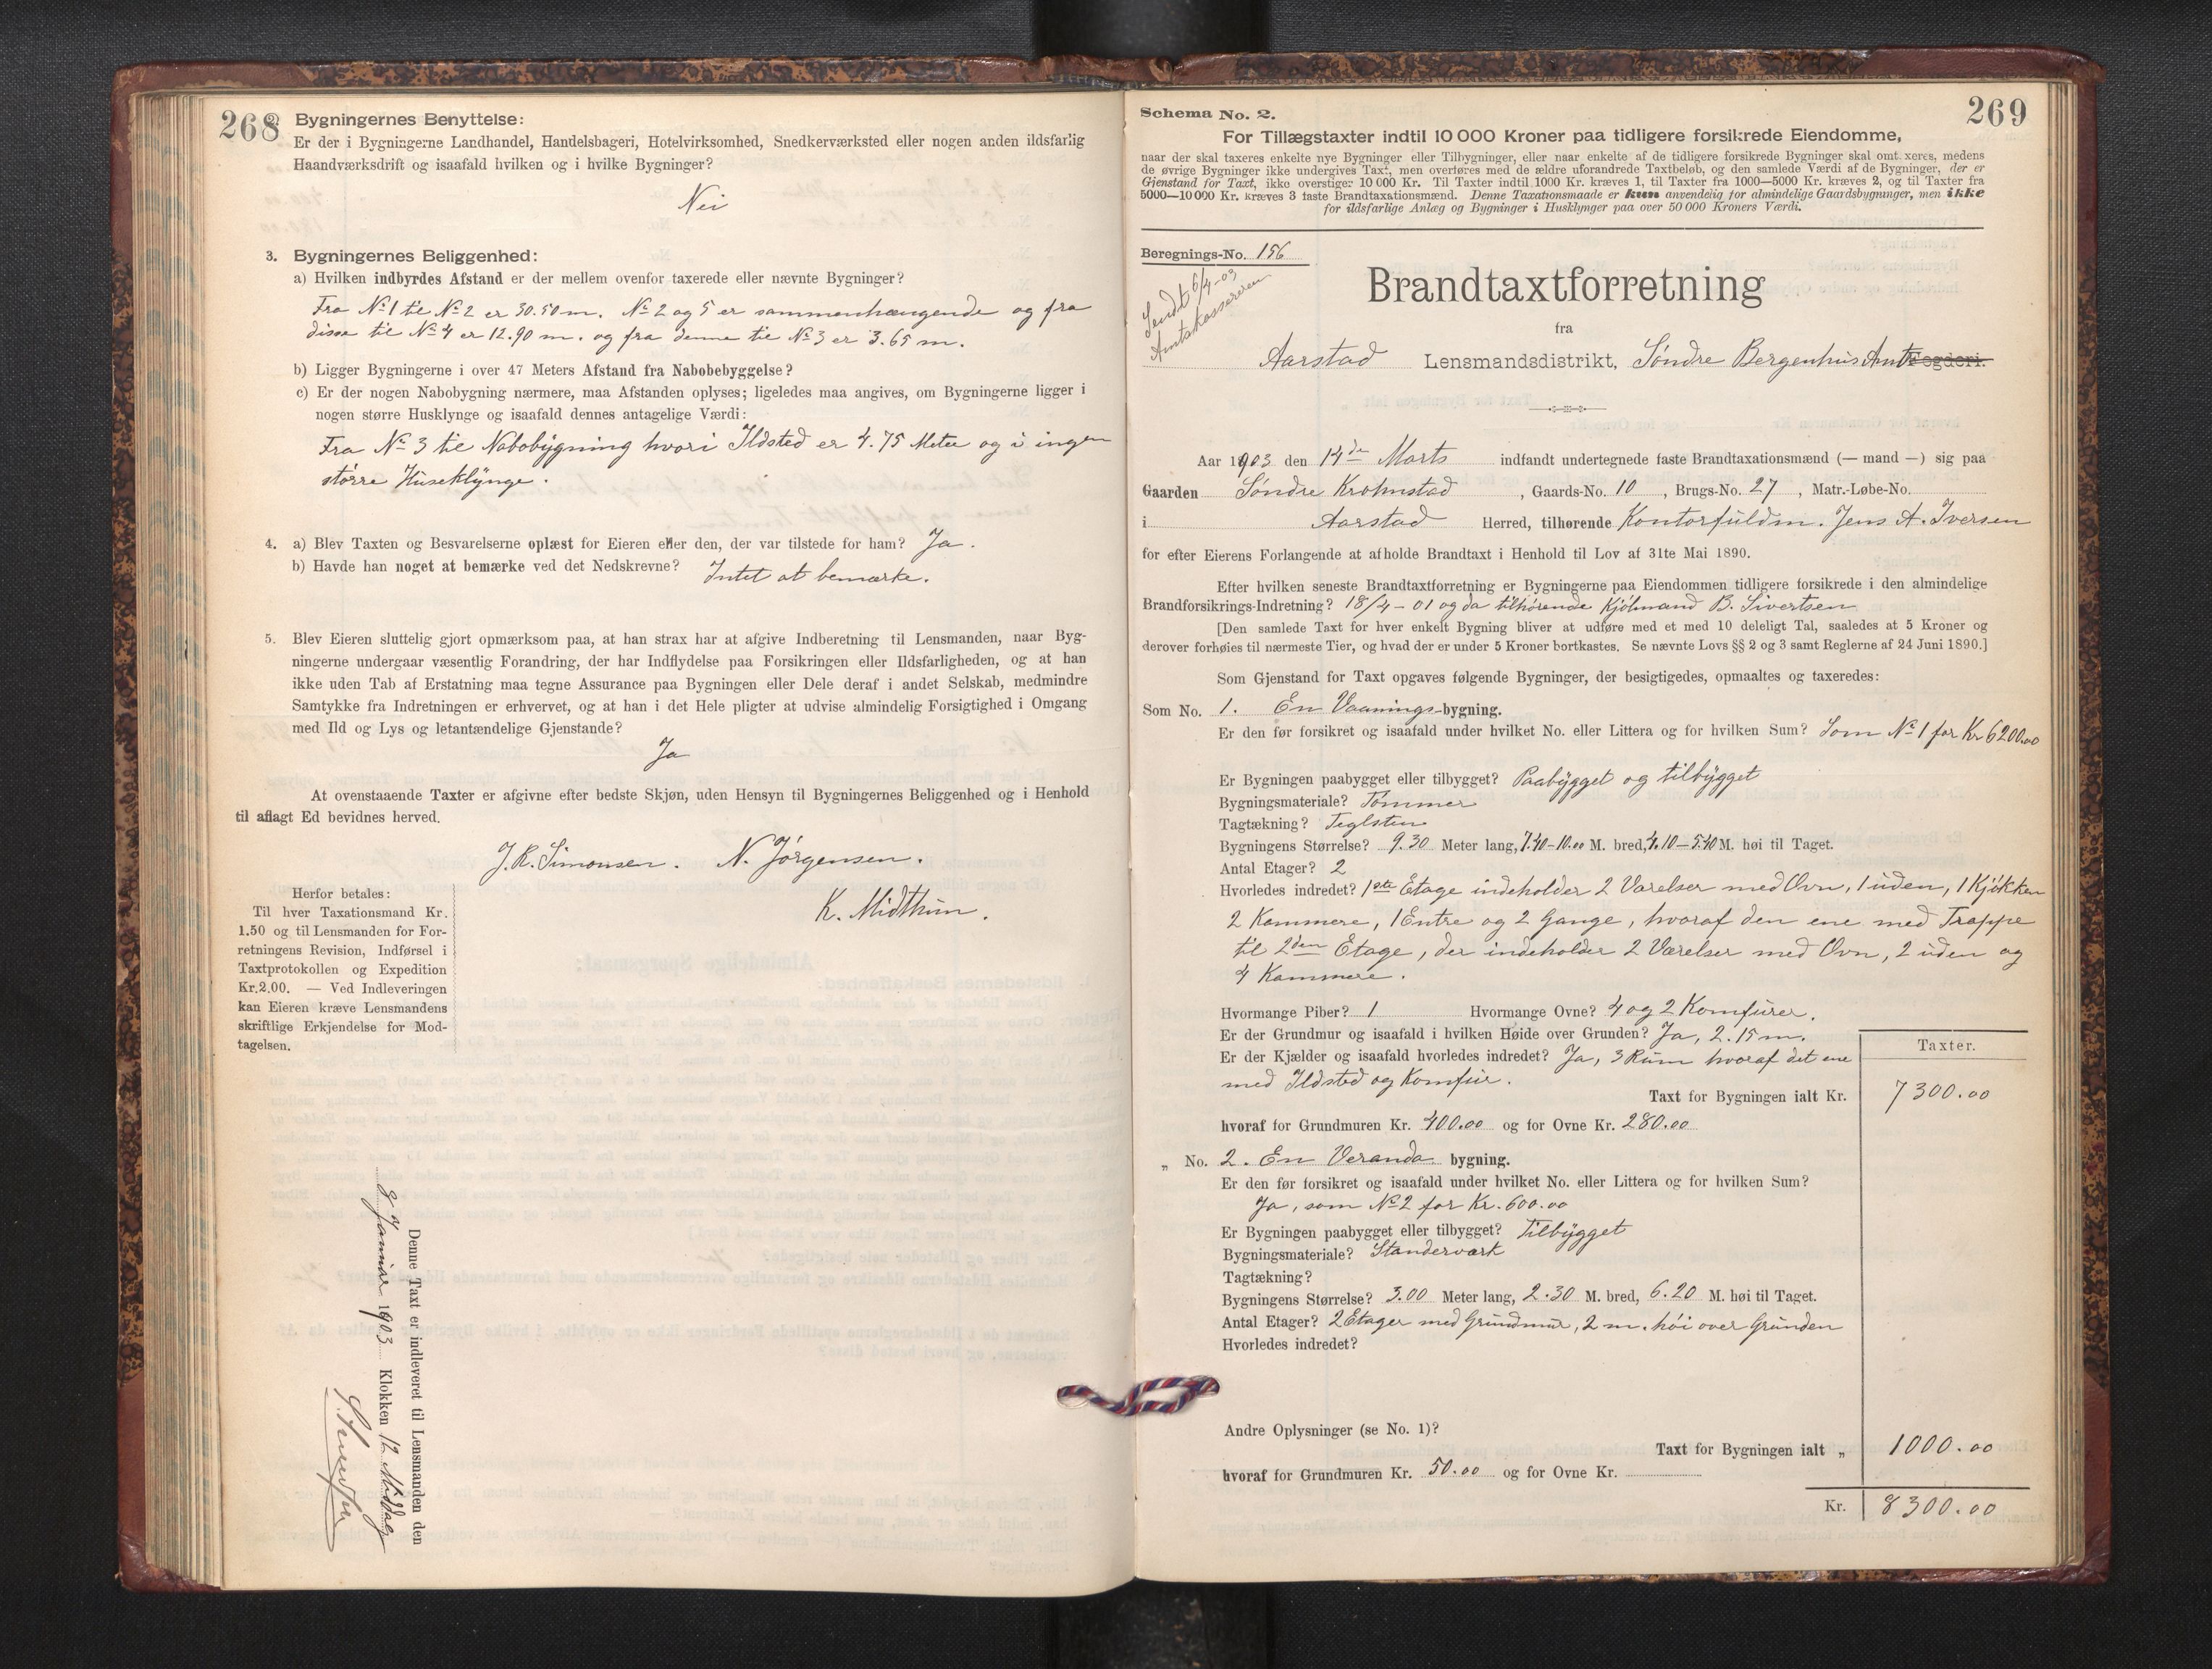 268
2. Bygningernes Benyttelse:
Er der i Bygningerne Landhandel, Handelsbageri, Hotelvirksomhed, Snedkerværksted eller nogen anden ildsfarlig
Haandværksdrift og isaafald hvilken og i hvilke Bygninger?
Nei
3. Bygningernes Beliggenhed:
a) Hvilken indbyrdes Afstand er der mellem ovenfor taxerede eller nævnte Bygninger?
Fra No 1 til No 2 er 30.50 m. No 2 og 5 er sammenhængende og fra
disse til No 4 er 12.90 m. og fra denne til No 3 er 3.65 m.
b) Ligger Bygningerne i over 47 Meters Afstand fra Nabobebyggelse?
c) Er der nogen Nabobygning nærmere, maa Afstanden oplyses; ligeledes maa angives, om Bygningerne ligger i
nogen større Husklynge og isaafald dennes antagelige Værdi:
Fra No 3 til Nabobygning hvori Ildsted er 4.75 Meter og i ingen
større Huseklynge.
4. a) Blev Taxten og Besvarelserne oplæst for Eieren eller den, der var tilstede for ham? Ja.
b) Havde han noget at bemærke ved det Nedskrevne? Intet at bemærke.
5. Blev Eieren sluttelig gjort opmærksom paa, at han strax har at afgive Indberetning til Lensmanden, naar Byg-
ningerne undergaar væsentlig Forandring, der har Indflydelse paa Forsikringen eller Ildsfarligheden, og at han
ikke uden Tab af Erstatning maa tegne Assurance paa Bygningen eller Dele deraf i andet Selskab, medmindre
Samtykke fra Indretningen er erhvervet, og at han i det Hele pligter at udvise almindelig Forsigtighed i Omgang
med Ild og Lys og letantændelige Gjenstande?
Ja
At ovenstaaende Taxter er afgivne efter bedste Skjøn, uden Hensyn til Bygningernes Beliggenhed og i Henhold
til aflagt Ed bevidnes herved.
J. R. Simonsen. N. Jørgensen.
K. Midthun.
Herfor betales:
Til hver Taxationsmand Kr.
1.50 og til Lensmanden for For-
retningens Revision, Indførsel i
Taxtprotokollen og Expedition
Kr.2.00. — Ved Indleveringen
kan Eieren kræve Lensmandens
skriftlige Erkjendelse for Mod-
tagelsen.
Denne Taxt er indleveret til Lensmanden den
8 Januar 1903 Klokken 12 Middag
269
Schema No. 2.
For Tillægstaxter indtil 10 000 Kroner paa tidligere forsikrede Eiendomme,
naar der skal taxeres enkelte nye Bygninger eller Tilbygninger, eller naar enkelte af de tidligere forsikrede Bygninger skal omtaxeres, medens
de øvrige Bygninger ikke undergives Taxt, men overføres med de ældre uforandrede Taxtbeløb, og den samlede Værdi af de Bygninger, der er
Gjenstand for Taxt, ikke overstiger 10 000 Kr. Til Taxter indtil 1000 Kr. kræves 1, til Taxter fra 1000—5000 Kr. kræves 2, og til Taxter fra
5000—10 000 Kr. kræves 3 faste Brandtaxationsmænd. Denne Taxationsmaade er kun anvendelig for almindelige Gaardsbygninger, men ikke
for ildsfarlige Anlæg og Bygninger i Husklynger paa over 50 000 Kroners Værdi.
Beregnings-No. 156
Sendt 6/4-03
Amtskassereren
Brandtaxtforretning
fra
Aarstad Lensmandsdistrikt, Søndre Bergenhus Amt Fogderi.
Aar 1903 den 14de Marts indfandt undertegnede faste Brandtaxationsmænd (— mand —) sig paa
Gaarden Søndre Krohnstad, Gaards-No. 10, Brugs-No. 27, Matr.-Løbe-No.
i Aarstad Herred, tilhørende Kontorfuldm. Jens A. Iversen
for efter Eierens Forlangende at afholde Brandtaxt i Henhold til Lov af 31te Mai 1890.
Efter hvilken seneste Brandtaxtforretning er Bygningerne paa Eiendommen tidligere forsikrede i den almindelige
Brandforsikrings-Indretning? 18/4-01 og da tilhørende Kjølmand B. Sivertsen
[Den samlede Taxt for hver enkelt Bygning bliver at udføre med et med 10 deleligt Tal, saaledes at 5 Kroner og
derover forhøies til nærmeste Tier, og hvad der er under 5 Kroner bortkastes. Se nævnte Lovs §§ 2 og 3 samt Reglerne af 24 Juni 1890.]
Som Gjenstand for Taxt opgaves følgende Bygninger, der besigtigedes, opmaaltes og taxeredes:
Som No. 1. En Vaanings-bygning.
Er den før forsikret og isaafald under hvilket No. eller Littera og for hvilken Sum? Som No 1 for Kr 6200.00
Er Bygningen paabygget eller tilbygget? Paabygget og tilbygget
Bygningsmateriale? Tømmer
Tagtækning? Teglsten
Bygningens Størrelse? 9.30 Meter lang, 7.40-10.00 M. bred, 4.10-5.40 M. høi til Taget.
Antal Etager? 2
Hvorledes indredet? 1ste Etage indeholder 2 Værelser med Ovn, 1 uden, 1 Kjøkken
2 Kammere, 1 Entre og 2 Gange, hvoraf den ene med Trappe
til 2den Etage, der indeholder 2 Værelser med Ovn, 2 uden og
4 Kammere.
Hvormange Piber? 1 Hvormange Ovne? 4 og 2 Komfurer.
Er der Grundmur og isaafald i hvilken Høide over Grunden? Ja, 2.15 m.
Er der Kjælder og isaafald hvorledes indredet? Ja, 3 Rum hvoraf det ene
med Ildsted og Komfur.
Taxter.
Taxt for Bygningen ialt Kr. 7300.00
hvoraf for Grundmuren Kr. 400.00 og for Ovne Kr. 280.00
„ No. 2. En Veranda bygning.
Er den før forsikret og isaafald under hvilket No. eller Littera og for hvilken Sum?
Ja, som No 2 for Kr. 600.00
Er Bygningen paabygget eller tilbygget? Tilbygget
Bygningsmateriale? Standerværk
Tagtækning?
Bygningens Størrelse? 3.00 Meter lang, 2.30 M. bred, 6.20 M. høi til Taget.
Antal Etager? 2 Etager med Grundmur, 2 m. høi over Grunden
Hvorledes indredet?
Andre Oplysninger (se No. 1)?
Taxt for Bygningen ialt „ 1000.00
hvoraf for Grundmuren Kr. 50.00 og for Ovne Kr.
Kr. 8300.00